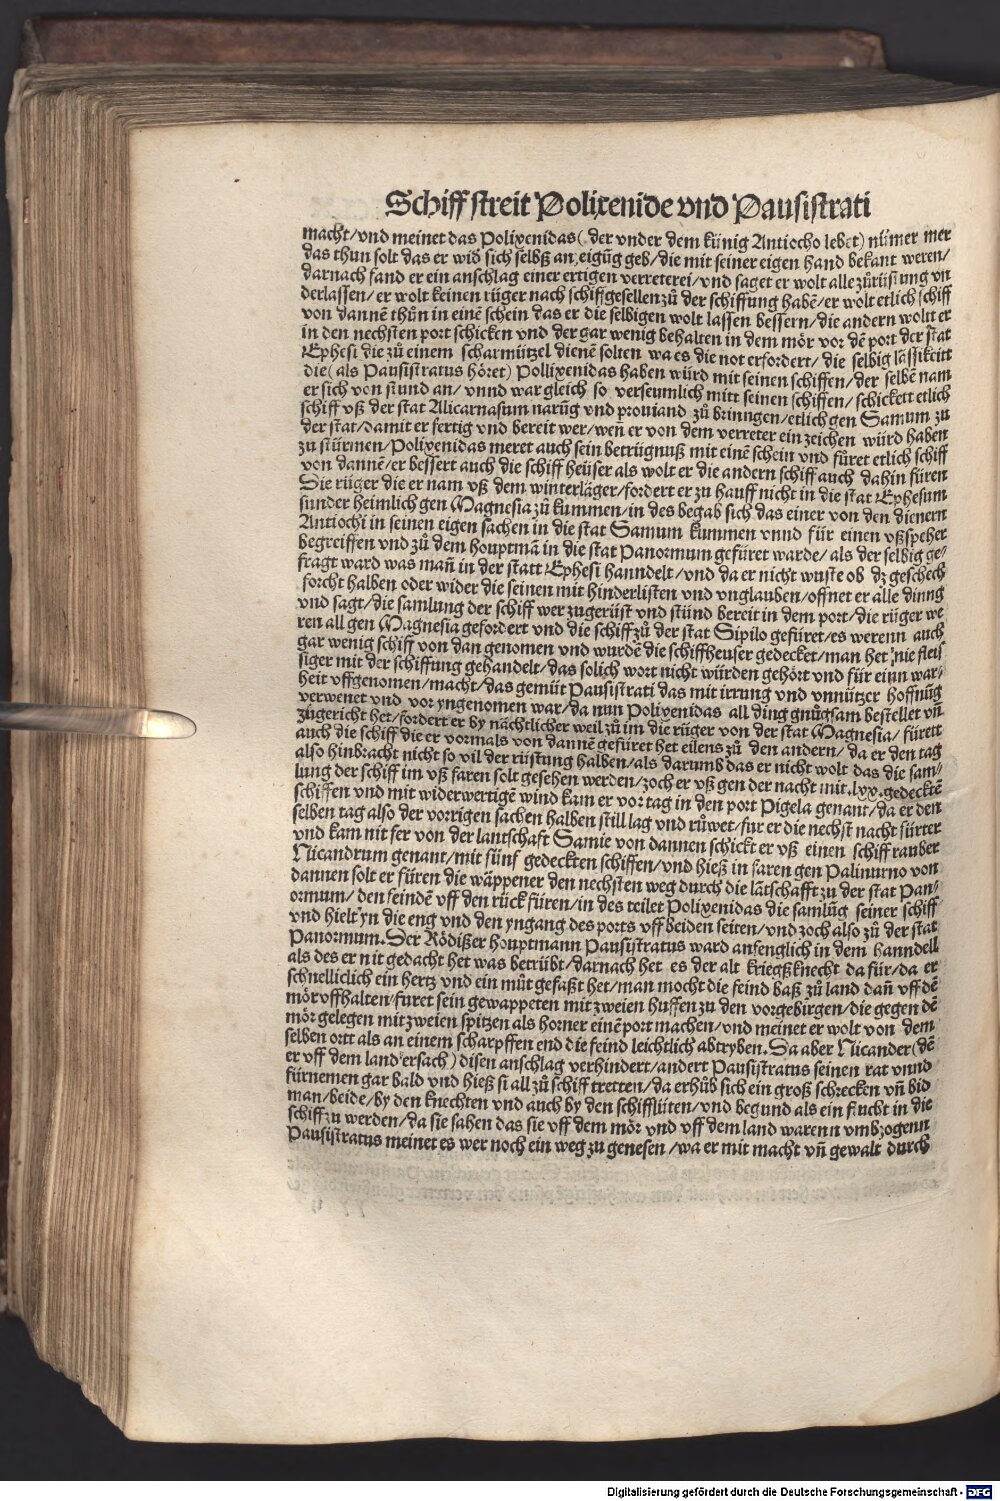 Schiff streit Polixenide vnd Pausistrati
macht/vnd meinet das Polixenidas( der vnder dem künig Antiocho lebet) nümer mer
das thun solt das er wid sich selbß an eigūg geb/die mit seiner eigen hand bekant weren/
darnach fand er ein anschlag einer ertigen verreterei/vnd saget er wolt alle zůrüstung vn
derlassen/er wolt keinen rüger nach schiffgesellen zů der schiffung habē/er wolt etlich schiff
von dannē thůn in einē schein das er die selbigen wolt lassen bessern/die andern woltt er
in den nechsten port schicken vnd der gar wenig behalten in dem mör vor dē port der stat
Ephesi die zů einem scharmützel dienē solten wa es die not erfordert/die selbig lässikeitt
die( als Pausistratus höret) Pollixenidas haben würd mit seinen schiffen/der selbē nam
er sich von stund an/ vnnd war gleich so verseumlich mitt seinen schiffen/ schickett etlich
schiff vß der stat Alicarnasum narūg vnd prouiand zů brinngen/etlich gen Samum zu
der stat/damit er fertig vnd bereit wer/wen̄ er von dem verreter ein zeichen würd haben
zu stürmen/Polixenidas meret auch sein betrügnuß mit einē schein vnd füret etlich schiff
von dannē/er bessert auch die schiff heüser als wolt er die andern schiff auch dahin füren
Die rüger die er nam vß dem winterläger/fordert er zu hauff nicht in die stat Ephesum
sunder heimlich gen Magnesia zů kummen/in des begab sich das einer von den dienern
Antiochi in seinen eigen sachen in die stat Samum kummen vnnd für einen vßspeher
begreiffen vnd zů dem houptmā in die stat Panormum gefüret warde/ als der selbig ge⸗
fragt ward was man̄ in der statt Ephesi hanndelt/vnd da er nicht wuste ob dz geschech
forcht halben oder wider die seinen mit hinderlisten vnd vnglauben/offnet er alle dinng
vnd sagt/die samlung der schiff wer zugerüst vnd stünd bereit in dem port/die rüger we
ren all gen Magnesia gefordert vnd die schiff zů der stat Sipilo gefüret/es werenn auch
gar wenig schiff von dan genomen vnd wurdē die schiffheuser gedecket/man het nie fleis
siger mit der schiffung gehandelt/das solich wort nicht würden gehört vnd für einn war⸗
heit vffgenomen/macht/das gemüt Pausistrati das mit irrung vnd vnnützer hoffnūg
verwenet vnd vor yngenomen war/da nun Polixenidas all ding gnůgsam bestellet vn̄
zugericht het/fordert er by nächtlicher weil zů im die rüger von der stat Magnesia/ fürett
auch die schiff die er vormals von dannē gefüret het eilens zů den andern/da er den tag
also hinbracht nicht so vil der rüstung halben/als darumb das er nicht wolt das die sam⸗
lung der schiff im vß faren solt gesehen werden/zoch er vß gen der nacht mit .lxx. gedecktē
schiffen vnd mit widerwertigē wind kam er vor tag in den port Pigela genant/da er den
selben tag also der vorrigen sachen halben still lag vnd růwet/fur er die nechst nacht fürter
vnd kam nit fer von der lantschaft Samie von dannen schickt er vß einen schiff rauber
Nicandrum genant/mit fünf gedeckten schiffen/vnd hieß in faren gen Palinurno von
dannen solt er füren die wäppener den nechsten weg durch die lātschafft zu der stat Pan⸗
ormum/ den feindē vff den rück füren/in des teilet Polixenidas die samlūg seiner schiff
vnd hielt yn die eng vnd den yngang des ports vff beiden seiten/vnd zoch also zů der stat
Panormum. Der Rödißer houptmann Pausistratus ward anfenglich in dem hanndell
als des er nit gedacht het was betrübt/darnach het es der alt kriegßknecht da für/da er
schnelliclich ein hertz vnd ein můt gefaßt het/man mocht die feind baß zů land dan̄ vff dē
mör vffhalten/furet sein gewappeten mit zweien huffen zu den vorgebirgen/die gegen dē
mör gelegen mit zweien spitzen als horner einē port machen/vnd meinet er wolt von dem
selben ortt als an einem scharpffen end die feind leichtlich abtryben. Da aber Nicander(dē
er vff dem land ersach) disen anschlag verhindert/andert Pausistratus seinen rat vnnd
fürnemen gar bald vnd hieß si all zů schiff tretten/da erhůb sich ein groß schrecken vn̄ bid
man/beide/by den knechten vnd auch by den schifflüten/vnd begund als ein flucht in die
schiff zu werden/da sie sahen das sie vff dem mör vnd vff dem land warenn vmbzogenn
Pausistratus meinet es wer noch ein weg zu genesen/wa er mit macht vn̄ gewalt durch
Digitalisierung gefördert durch die Deutsche Forschungsgemeinschaft - DFG